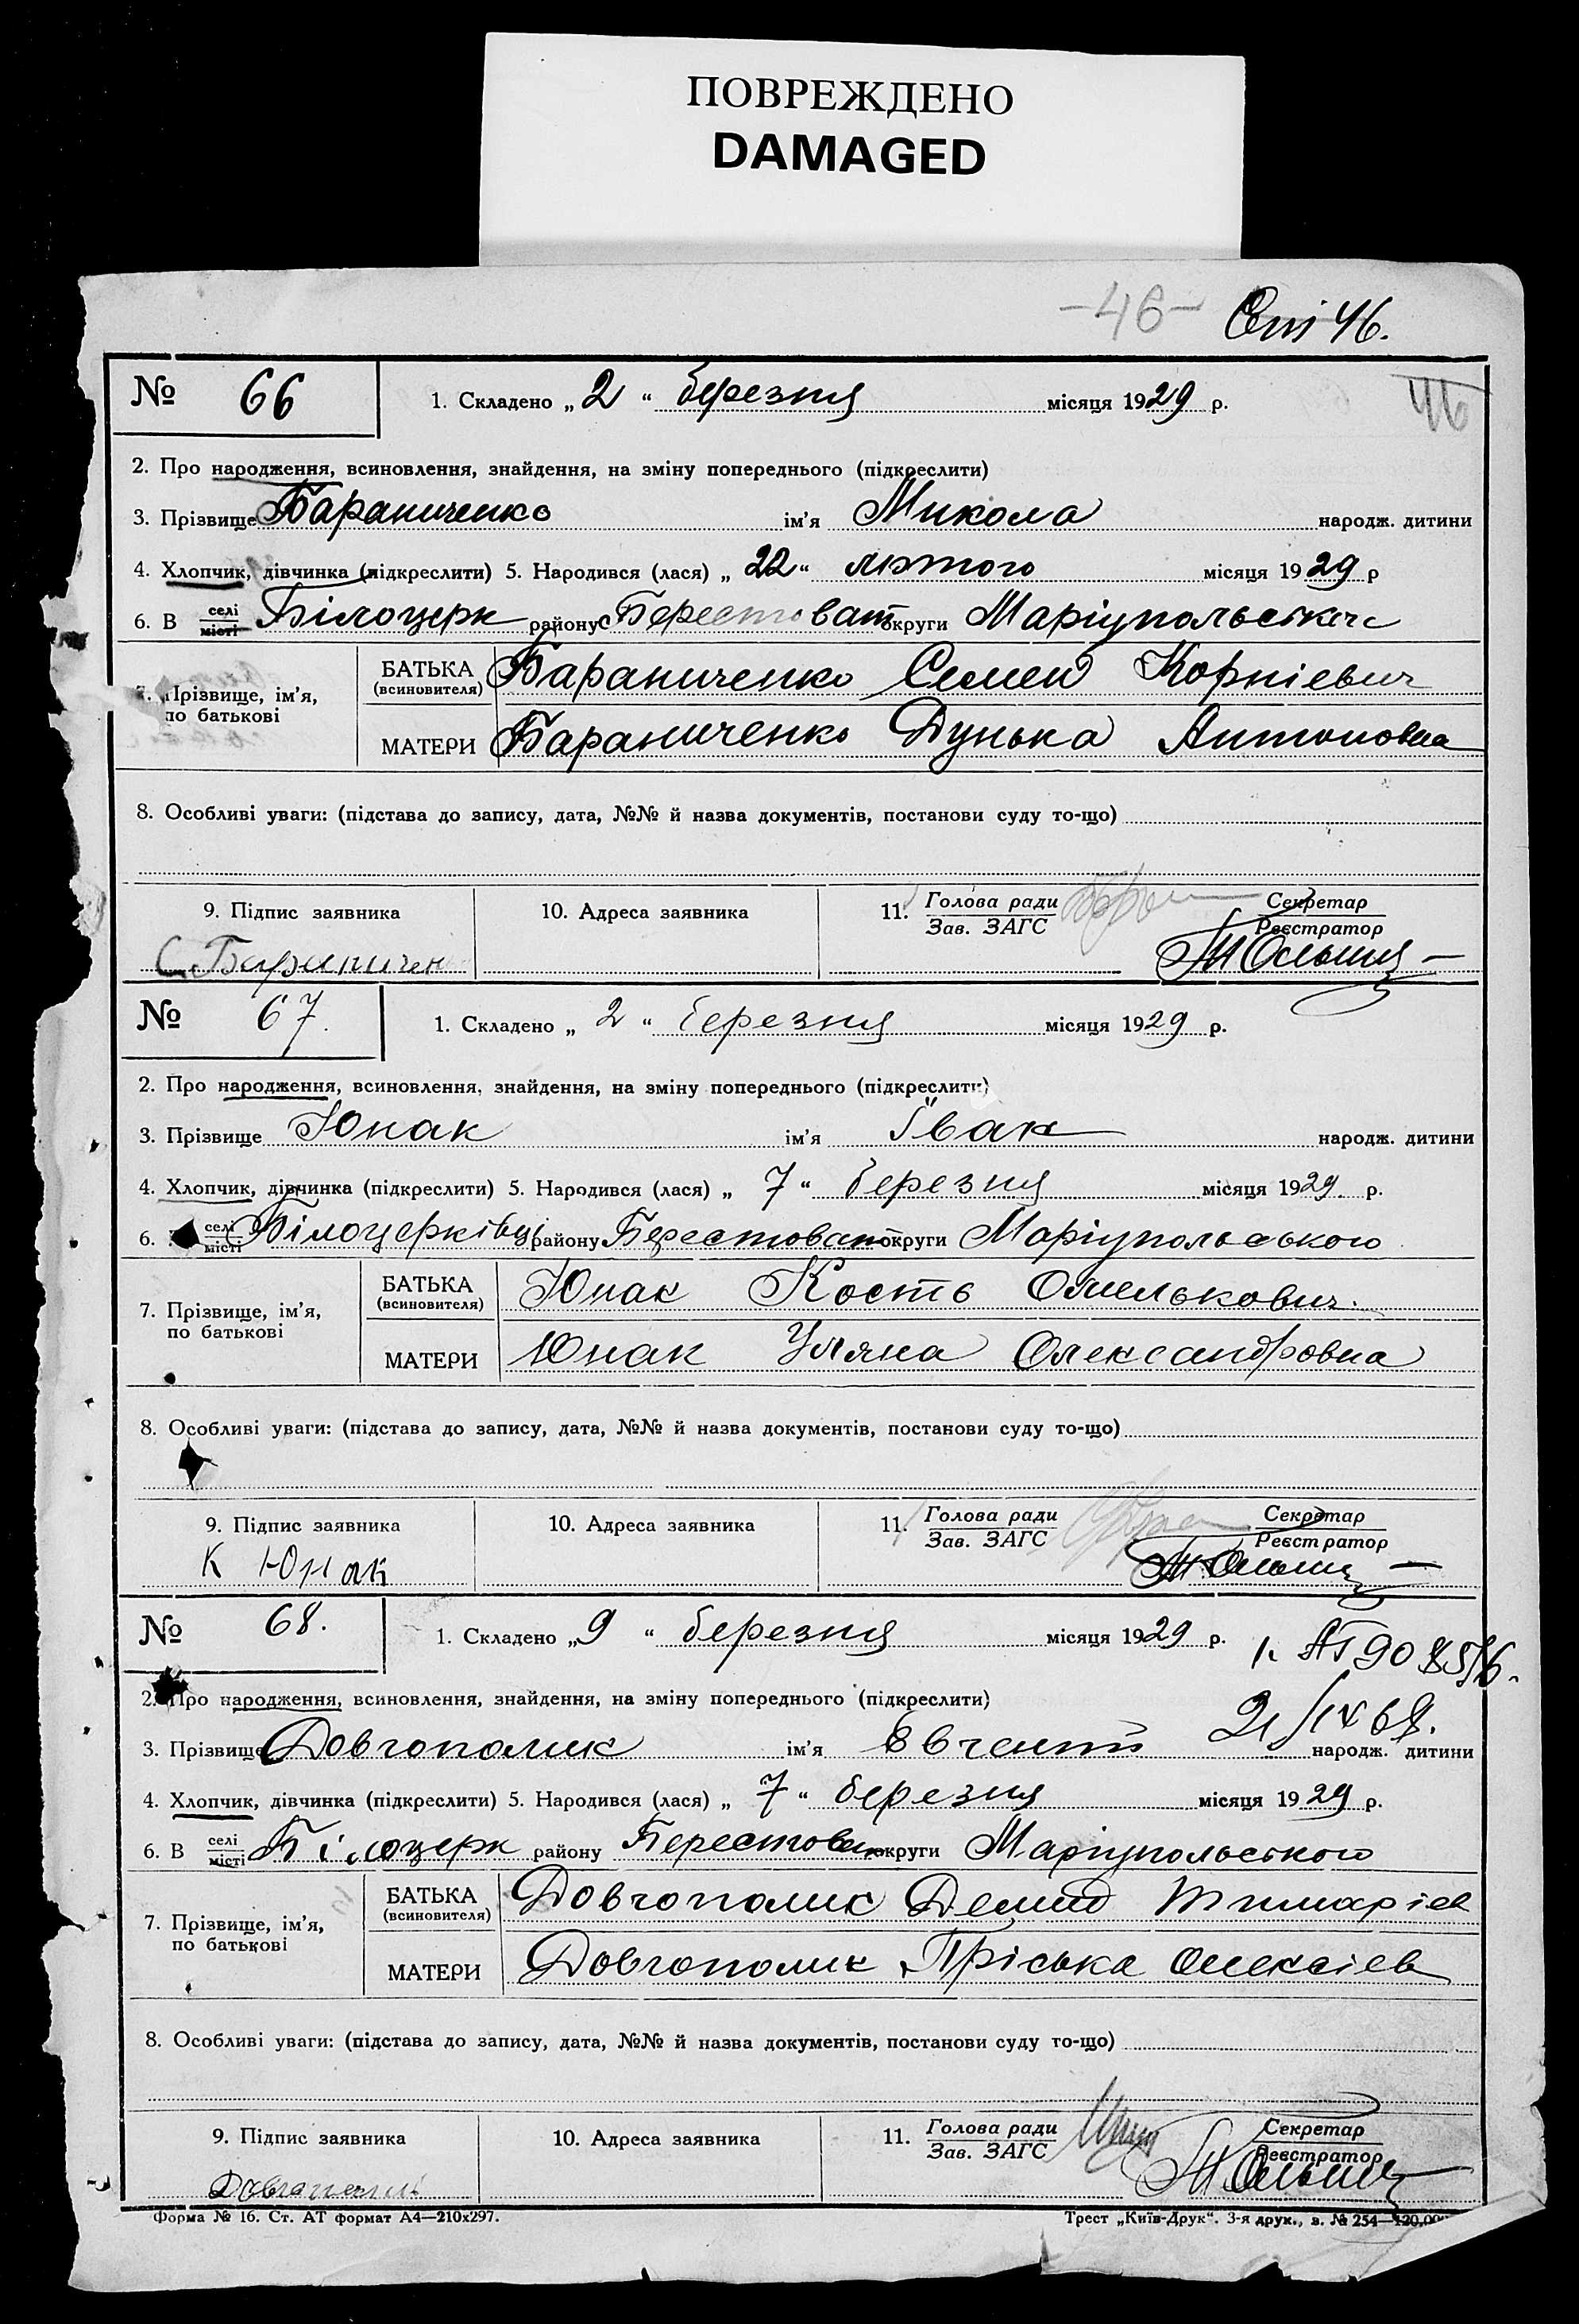 ПОВРЕЖДЕНО
DAMAGED
-46-
46.
№ 66 1. Складено „ 2 “ березня місяця 1929 р.
46
2. Про народження, всиновлення, знайдення, на зміну попереднього (підкреслити)
3. Прізвище Бараниченко ім’я Микола народж. дитини
4. Хлопчик, дівчинка (підкреслити) 5. Народився (лася) „ 22 “ лютого місяця 1929 р
6. В селі місті Білоцерк району Берестоват округи Маріупольської
7. Прізвище, ім’я, по батькові
БАТЬКА (всиновителя) Бараниченко Семен Корнієвич
МАТЕРИ Бараниченко Дунька Антоновна
8. Особливі уваги: (підстава до запису, дата, №№ й назва документів, постанови суду то-що)
9. Підпис заявника 10. Адреса заявника 11. Голова ради Зав. ЗАГС Секретар Реєстратор
С. Бараничен
№ 67. 1. Складено „ 2 “ березня місяця 1929 р.
2. Про народження, всиновлення, знайдення, на зміну попереднього (підкреслити)
3. Прізвище Юнак ім’я Іван народж. дитини
4. Хлопчик, дівчинка (підкреслити) 5. Народився (лася) „ 7 “ березня місяця 1929. р.
6. селі місті Білоцерківці району Берестоват округи Маріупольського
7. Прізвище, ім’я, по батькові
БАТЬКА (всиновителя) Юнак Кость Омелькович.
МАТЕРИ Юнак Уляна Олександровна
8. Особливі уваги: (підстава до запису, дата, №№ й назва документів, постанови суду то-що)
9. Підпис заявника 10. Адреса заявника 11. Голова ради Зав. ЗАГС Секретар Реєстратор
К Юнак
№ 68. 1. Складено „ 9 “ березня місяця 1929 р.
2. Про народження, всиновлення, знайдення, на зміну попереднього (підкреслити)
3. Прізвище Довгополик ім’я Євгений народж. дитини
4. Хлопчик, дівчинка (підкреслити) 5. Народився (лася) „ 7 “ березня місяця 1929 р.
6. В селі місті Білоцерк району Берестов округи Маріупольського
7. Прізвище, ім’я, по батькові
БАТЬКА (всиновителя) Довгополик Демид
МАТЕРИ Довгополик Пріська Олексієв
8. Особливі уваги: (підстава до запису, дата, №№ й назва документів, постанови суду то-що)
9. Підпис заявника 10. Адреса заявника 11. Голова ради Зав. ЗАГС Секретар Реєстратор
Форма № 16. Ст. АТ формат А4—210х297. Трест „Київ-Друк“. 3-я друк., з. № 254—120.00